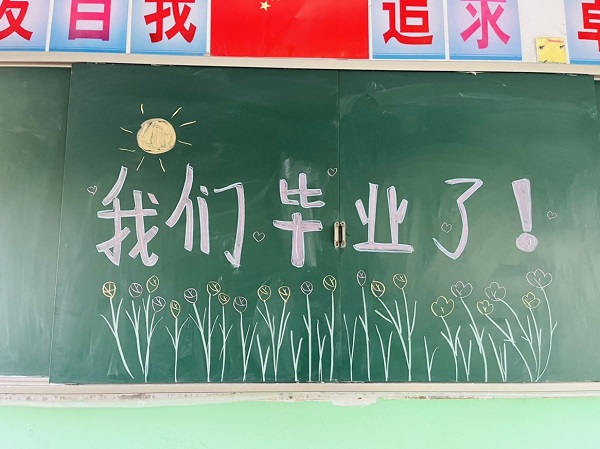 发自我 追求卓
我们毕业了!